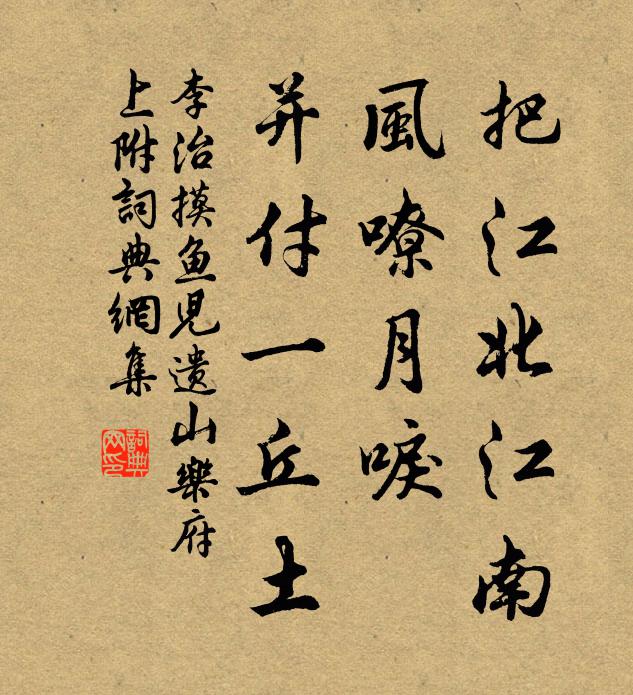 把江北江南
風嘹月唳
并付一丘土
李治摸鱼児遗山樂府
上附詞典網集
詞典網印